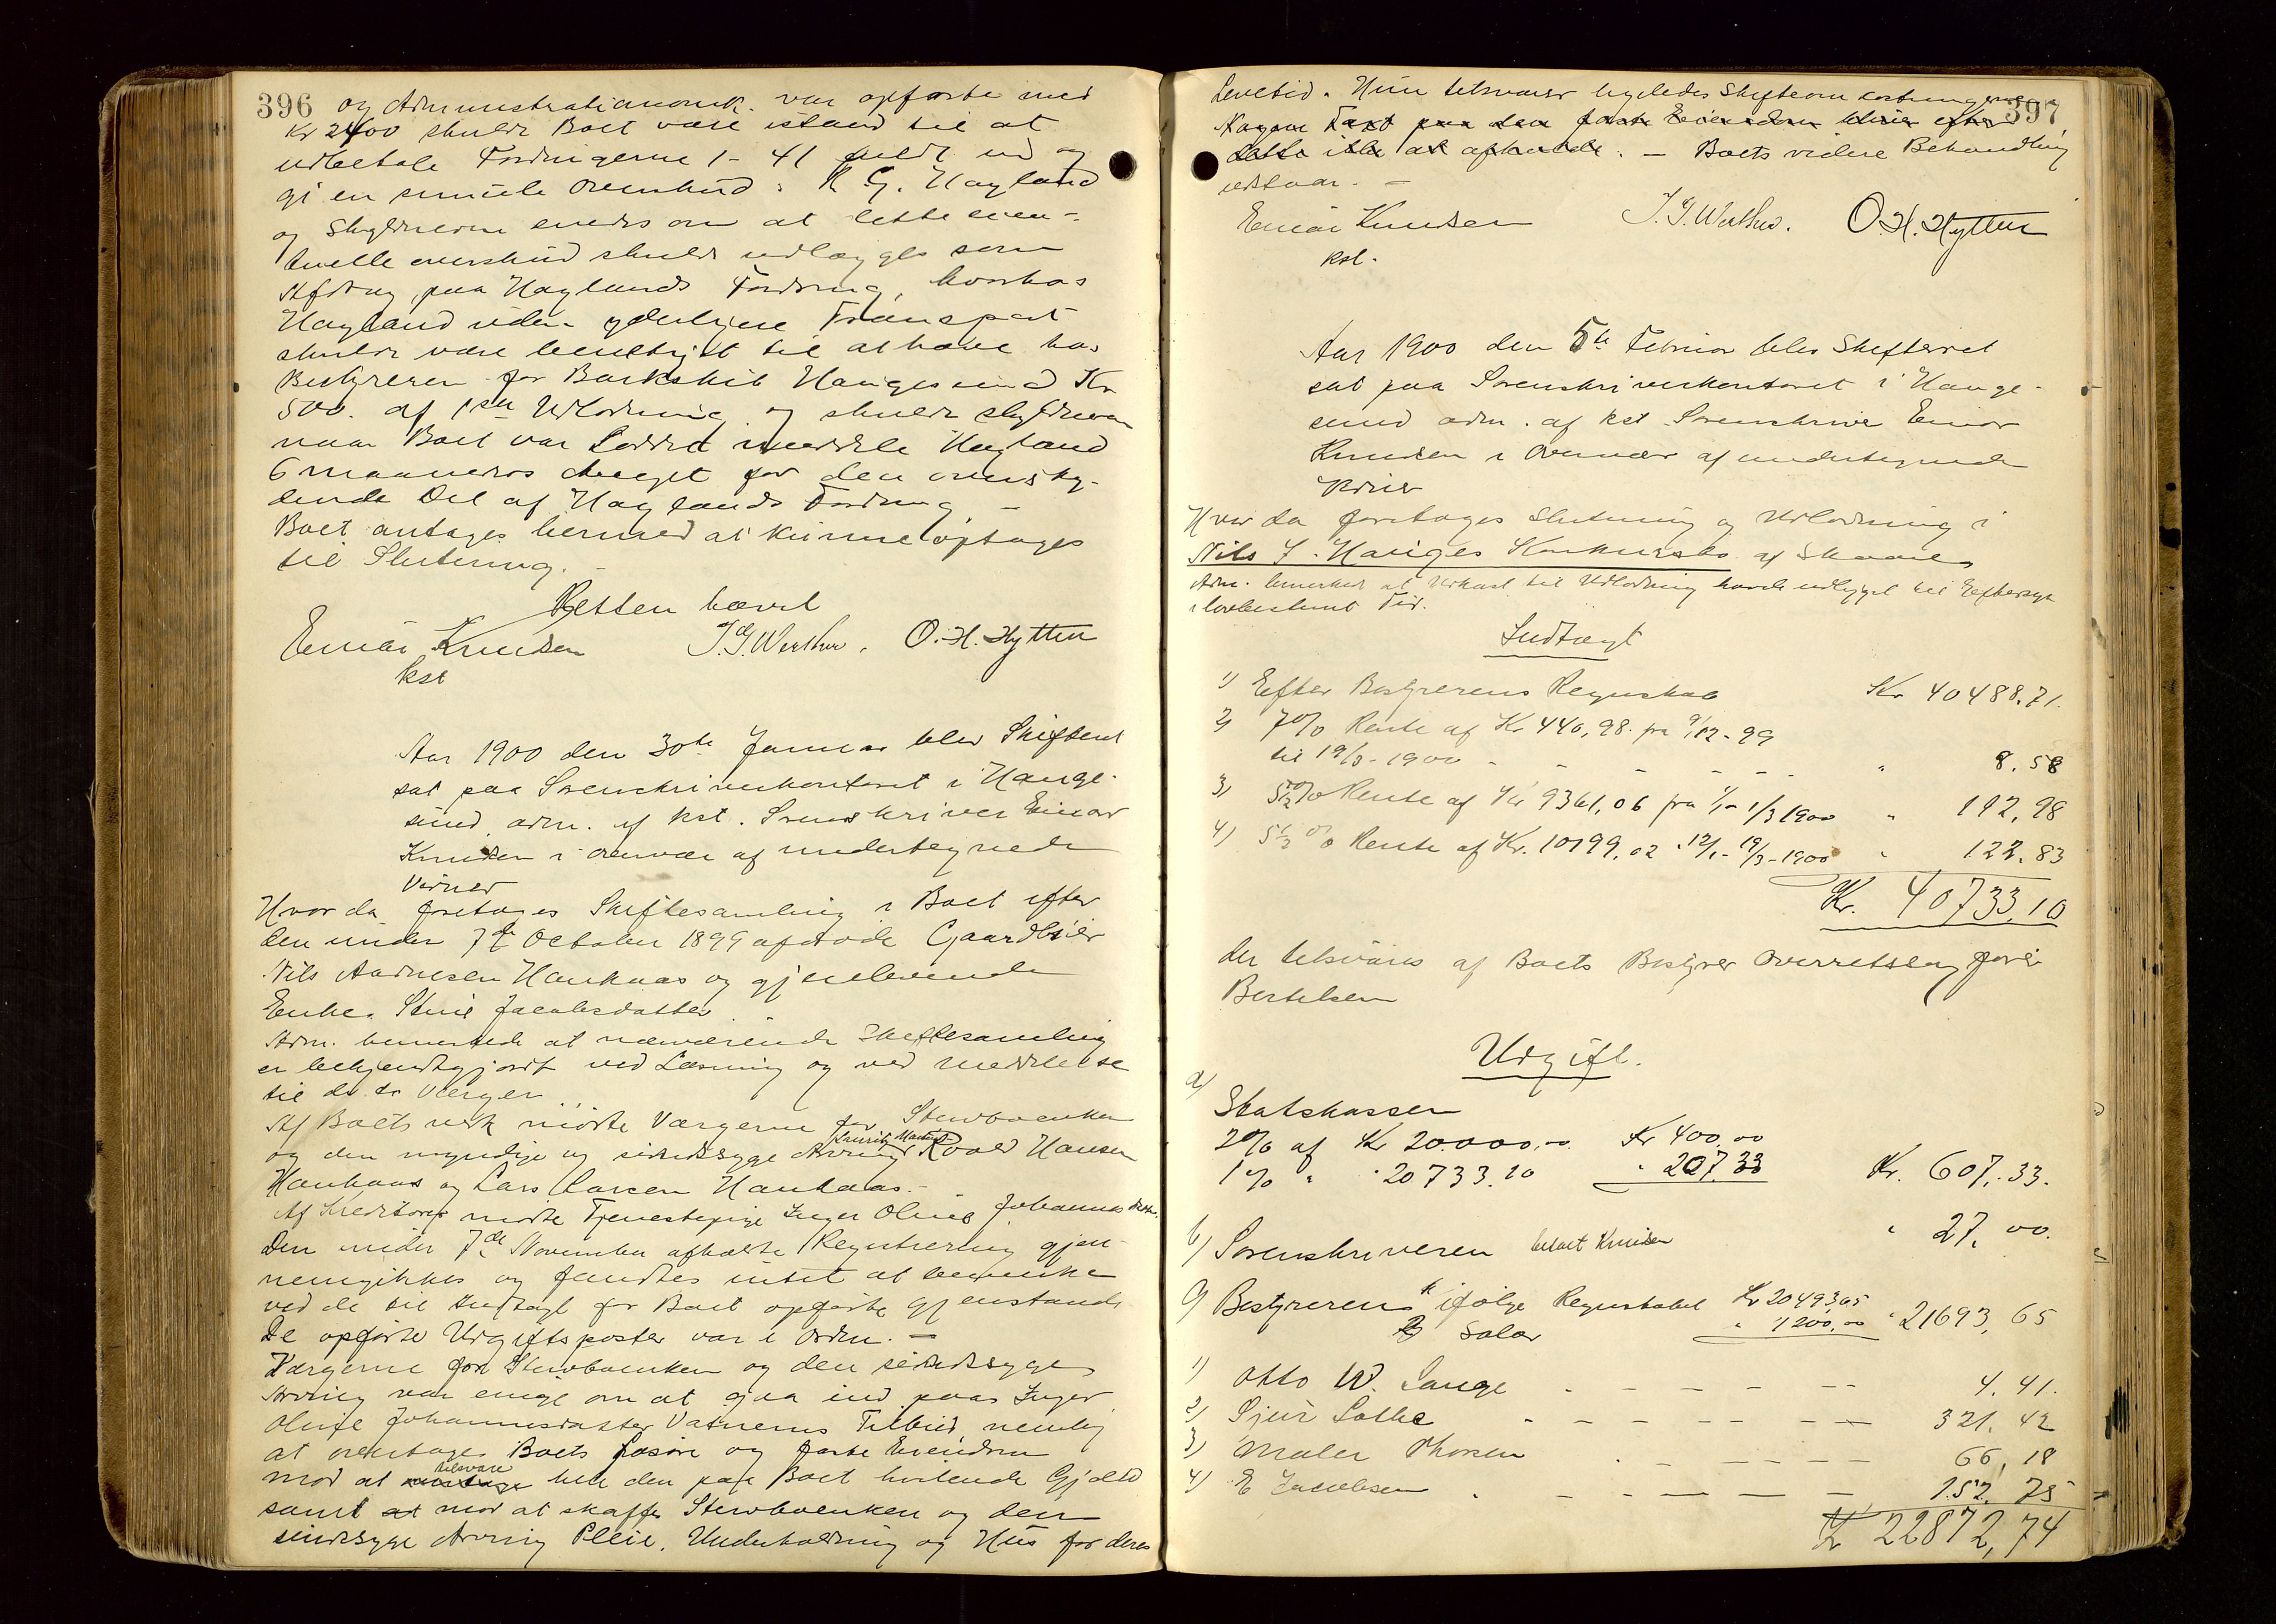 396
og Administrationsomk. var opførte med
Kr 2400 skulde Boet være istand til at
udbetale Fordringerne 1-41 fuldt ud og
gi en smule overskud. K. G. Hagland
og Skyldneren enedes om at dette even-
tuelle overskud skulde udlægges som
Afdrag paa Haglands Fordring, hvorhos
Hagland uden yderligere Transport
skulde være berettiget til at hæve hos
Bestyreren for Barkskib Haugesund Kr
500. af 1ste Udlodning og skulde skyldneren
naar Boet var sluttet meddele Hagland
6 maaneders for den oversky-
dende Del af Haglands Fordring. -
Boet antages hermed at kunne optages
til Slutning. -
Retten hævet
Einar Knudsen J. G. Werther. O. H. Hytten
kst
Aar 1900 den 30te Januar blev Skifteret
sat paa Sorenskriverkontoret i Hauge-
sund, adm. af kst. Sorenskriver Einar
Knudsen i overvær af undertegnede
Vidner
Hvor da foretoges Skiftesamling i Boet efter
den under 7de October 1899 afdøde Gaardbruger
Nils Haukaas og gjenlevende
Enke Jacobsdatter
Adm. bemærkede at nærværende Skiftesamling
er bekjendtgjort ved Læsning og ved meddelelse
til de to Værger.
Af Boets vedk mødte Værgerne for Stervboenken
og den myndige og sindssyge Arving Roald Hansen
Haukaas og Lars Larsen Haukaas. -
Af Kreditorer mødte Tjenestepige Inger Oline Johannesdatter.
Den under 7de November afholdte Registrering gjen-
nemgikkes og fandtes intet at bemærke
ved de til Indtægt for Boet opførte gjenstande
De opførte Udgiftsposter var i orden. -
Værgerne for Stervboenken og den sindssyge
Arving var enige om at gaa ind paa Inger
Oline Johannesdatter Vatnems Tilbud, nemlig
at overtage Boets Løsøre og faste Eiendom
mod at tilsvare hele den paa Boet hvilende Gjæld
samt at mod at skaffe Stervboenken og den
sindssyge Arving Pleie, Underholdning og Hus for deres
397
Levetid. Hun tilsvarer ligeledes Skifteomkostningerne.
Nogen Taxt paa den faste Eiendom bliver efter
dette ikke at afholde. - Boets videre Behandling
udstaar. -
Einar Knudsen J. G. Werther. O. H. Hytten
kst.
Aar 1900 den 5te Februar blev Skifteret
sat paa Sorenskriverkontoret i Hauge-
sund adm. af kst Sorenskriver Einar
Knudsen i Overvær af undertegnede
Vidner
Hvor da foretoges Slutning og Udlodning i
Nils J. Hauges Konkursbo af Skaare
Adm. bemærkede at Udkast til Udlodning havde udligget til Eftersyn
i lovbestemt Tid.
Indtægt
1) Efter Bestyrerens Regnskab Kr 40488.71.
2) 7% Rente af Kr 440,98. fra 9/12-99
til 19/3-1900 - - - - - - " 8.58
3) 5½% Rente af Kr 9361,06 fra 1/1-1/3 1900 " 112,98
4) 5½% Rente af Kr. 10199,02 " 12/1-19/3-1900 " 122.83
Kr. 40733,10
der tilsvares af Boets Bestyrer Overretssagfører
Bertelsen
Udgift.
a) Statskassen
2% af Kr 20.000.00 Kr 400.00
1% " " 20733.10 " 207.33 Kr. 607.33.
b) Sorenskriveren betalt Knudsen " 27,00.
c) Bestyreren ifølge Regnskabet Kr 20493,65
Salær " 1200,00 " 21693,65
1) Otto W. Lange - - - - - - 4.41.
2) Sjur Lothe - - - - - - 321.42
3) Maler Thorsen - - - - - 66,18
4) E Jacobsen - - - - - - 152.75
Kr 22872,74